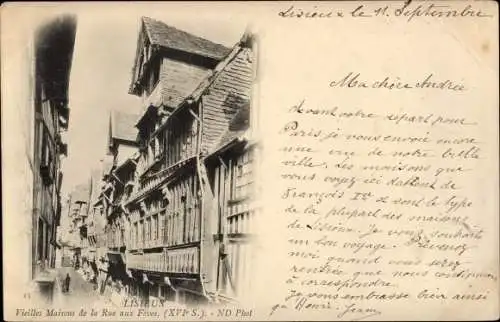 Lisieux le 11 Septembre
Ma chère Andrée
Avant votre départ pour
Paris je vous envoie encore
une vue de notre belle
ville. Les maisons que
vous voyez ici datent de
François Ier et sont le type
de la plupart des maisons
de Lisieux. Je vous souhaite
un bon voyage. Prévenez
moi quand vous serez
rentrée que nous continuions
correspondre.
Je vous embrasse bien ainsi
qu'Henri. Jeanne
LISIEUX
Vieilles Maisons de la Rue aux Fèves, (XVIe S.). - ND Phot